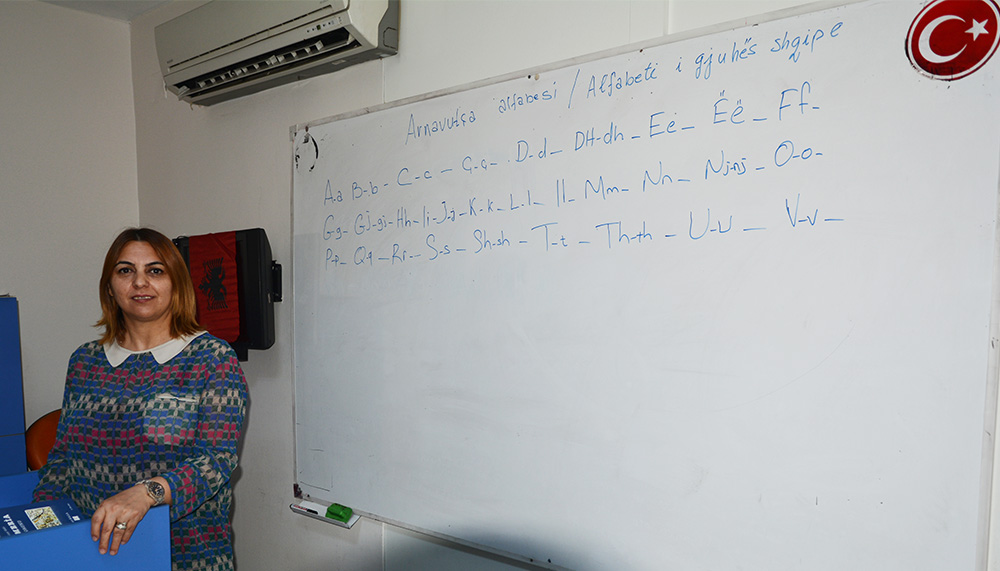 Arnavutça alfabesi / Alfabeti i gjuhës shqipe
A-a B-b - C-c - Ç-ç - D-d - DH-dh - Ee - Ëë - Ff -
G-g - Gj-gj - Hh - Ii - J-j - K-k - L-l - ll - Mm - Nn - Nj-nj - O-o -
P-p - Q-q - Rr - S-s - Sh-sh - T-t - Th-th - U-u - V-v -